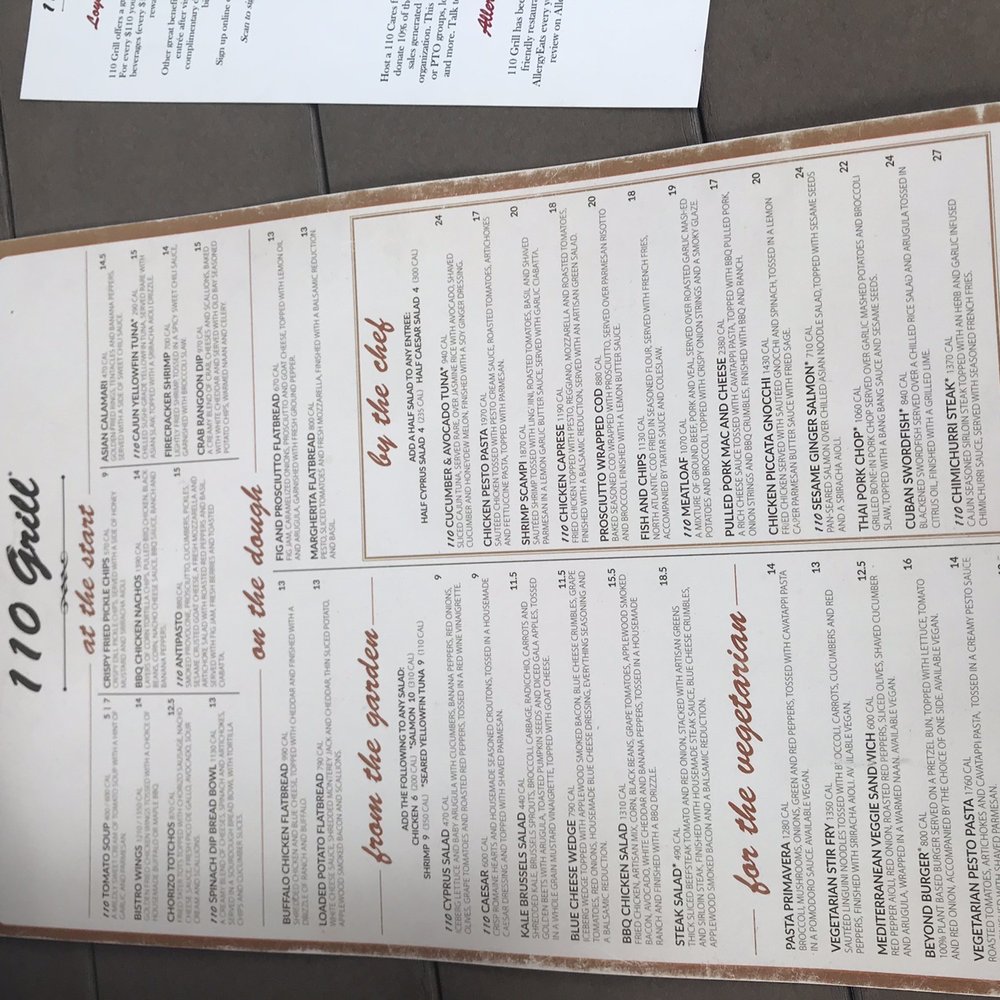 110 Grill
at the start
110 TOMATO SOUP 400 / 600 CAL 5 | 7
BISTRO WINGS 1210 / 1350 CAL 14
GOLDEN FRIED CHICKEN WINGS TOSSED WITH A CHOICE OF
HOUSEMADE BUFFALO OR MAPLE BBQ.
CHORIZO TOTCHOS 12.5
110 SPINACH DIP BREAD BOWL 1130 CAL 13
SERVED IN A SOURDOUGH BREAD BOWL WITH TORTILLA
CHIPS AND CUCUMBER SLICES.
CRISPY FRIED PICKLE CHIPS 570 CAL 9
CRISPY DILL PICKLE CHIPS SERVED WITH A SIDE OF HONEY
MUSTARD AND SRIRACHA AIOLI.
BBQ CHICKEN NACHOS 1390 CAL 14
LAYERS OF CORN TORTILLA CHIPS, PULLED BBQ CHICKEN, BLACK
BEANS, CORN, NACHO CHEESE SAUCE, BBQ SAUCE, RANCH AND
BANANA PEPPERS.
110 ANTIPASTO 15
SMOKED PROVOLONE, PROSCIUTTO, CUCUMBERS, PICKLES,
SESAME CRUSTED GOAT CHEESE, A FRESH MOZZARELLA AND
ARTICHOKE SALAD WITH ROASTED RED PEPPERS AND BASIL.
SERVED WITH FIG JAM, FRESH BERRIES AND TOASTED
CIABATTA.
ASIAN CALAMARI 470 CAL 14.5
GOLDEN FRIED RINGS, TENTACLES AND BANANA PEPPERS,
SERVED WITH A SIDE OF SWEET CHILI SAUCE.
110 CAJUN YELLOWFIN TUNA* 290 CAL 15
SUSHI GRADE YELLOWFIN TUNA, SERVED RARE WITH
ASIAN SLAW, TOPPED WITH A SRIRACHA AIOLI DRIZZLE.
FIRECRACKER SHRIMP 700 CAL 14
LIGHTLY FRIED SHRIMP TOSSED IN A SPICY SWEET CHILI SAUCE,
GARNISHED WITH BROCCOLI SLAW.
CRAB RANGOON DIP 970 CAL 15
A CREAMY BLEND OF CRAB, CHEESES AND SCALLIONS, BAKED
WITH WHITE CHEDDAR AND SERVED WITH OLD BAY SEASONED
POTATO CHIPS, WARMED NAAN AND CELERY.
on the dough
BUFFALO CHICKEN FLATBREAD 990 CAL 13
SHREDDED CHICKEN AND BLEU CHEESE, TOPPED WITH CHEDDAR AND FINISHED WITH A
DRIZZLE OF RANCH AND BUFFALO.
LOADED POTATO FLATBREAD 790 CAL 13
WHITE CHEESE SAUCE, SHREDDED MONTEREY JACK AND CHEDDAR, THIN SLICED POTATO,
APPLEWOOD SMOKED BACON AND SCALLIONS.
FIG AND PROSCIUTTO FLATBREAD 670 CAL 13
FIG JAM, CARAMELIZED ONIONS, PROSCIUTTO AND GOAT CHEESE, TOPPED WITH LEMON OIL
AND ARUGULA, GARNISHED WITH FRESH GROUND PEPPER.
MARGHERITA FLATBREAD 800 CAL 13
PESTO, SLICED TOMATOES AND FRESH MOZZARELLA, FINISHED WITH A BALSAMIC REDUCTION
AND BASIL.
from the garden
ADD THE FOLLOWING TO ANY SALAD:
CHICKEN 6 (200 CAL) *SALMON 10 (310 CAL)
SHRIMP 9 (350 CAL) *SEARED YELLOWFIN TUNA 9 (110 CAL)
110 CYPRUS SALAD 470 CAL 9
ICEBERG LETTUCE AND BABY ARUGULA WITH CUCUMBERS, BANANA PEPPERS, RED ONIONS,
OLIVES, GRAPE TOMATOES AND ROASTED RED PEPPERS, TOSSED IN A RED WINE VINAIGRETTE.
110 CAESAR 600 CAL 9
CRISP ROMAINE HEARTS AND HOUSEMADE SEASONED CROUTONS, TOSSED IN A HOUSEMADE
CAESAR DRESSING AND TOPPED WITH SHAVED PARMESAN.
KALE BRUSSELS SALAD 440 CAL 11.5
SHREDDED KALE, BRUSSELS SPROUTS, BROCCOLI, CABBAGE, RADICCHIO, CARROTS AND
GOLDEN BEETS WITH ARUGULA, TOASTED PUMPKIN SEEDS AND DICED GALA APPLES, TOSSED
IN A WHOLE GRAIN MUSTARD VINAIGRETTE, TOPPED WITH GOAT CHEESE.
BLUE CHEESE WEDGE 790 CAL 11.5
ICEBERG WEDGE TOPPED WITH APPLEWOOD SMOKED BACON, BLUE CHEESE CRUMBLES, GRAPE
TOMATOES, RED ONIONS, HOUSEMADE BLUE CHEESE DRESSING, EVERYTHING SEASONING AND
A BALSAMIC REDUCTION.
BBQ CHICKEN SALAD 1310 CAL 15.5
FRIED CHICKEN, ARTISAN MIX, CORN, BLACK BEANS, GRAPE TOMATOES, APPLEWOOD SMOKED
BACON, AVOCADO, WHITE CHEDDAR AND BANANA PEPPERS, TOSSED IN A HOUSEMADE
RANCH AND FINISHED WITH A BBQ DRIZZLE.
STEAK SALAD* 490 CAL 18.5
THICK SLICED BEEFSTEAK TOMATO AND RED ONION, STACKED WITH ARTISAN GREENS
AND SIRLOIN STEAK, FINISHED WITH HOUSEMADE STEAK SAUCE, BLUE CHEESE CRUMBLES,
APPLEWOOD SMOKED BACON AND A BALSAMIC REDUCTION.
for the vegetarian
PASTA PRIMAVERA 1280 CAL 14
BROCCOLI, MUSHROOMS, ONIONS, GREEN AND RED PEPPERS, TOSSED WITH CAVATAPPI PASTA
IN A POMODORO SAUCE. AVAILABLE VEGAN.
VEGETARIAN STIR FRY 1350 CAL 13
SAUTÉED LINGUINI NOODLES TOSSED WITH BROCCOLI, CARROTS, CUCUMBERS AND RED
PEPPERS, FINISHED WITH SRIRACHA AIOLI. AVAILABLE VEGAN.
MEDITERRANEAN VEGGIE SANDWICH 600 CAL 12.5
RED PEPPER AIOLI, RED ONION, ROASTED RED PEPPERS, SLICED OLIVES, SHAVED CUCUMBER
AND ARUGULA, WRAPPED IN A WARMED NAAN. AVAILABLE VEGAN.
BEYOND BURGER* 800 CAL 16
100% PLANT BASED BURGER SERVED ON A PRETZEL BUN, TOPPED WITH LETTUCE, TOMATO
AND RED ONION, ACCOMPANIED BY THE CHOICE OF ONE SIDE. AVAILABLE VEGAN.
VEGETARIAN PESTO PASTA 1760 CAL 14
ROASTED TOMATOES, ARTICHOKES AND CAVATAPPI PASTA, TOSSED IN A CREAMY PESTO SAUCE
by the chef
ADD A HALF SALAD TO ANY ENTREE:
HALF CYPRUS SALAD 4 (235 CAL) HALF CAESAR SALAD 4 (300 CAL)
110 CUCUMBER & AVOCADO TUNA* 940 CAL 24
SLICED CAJUN TUNA, SERVED RARE, OVER JASMINE RICE WITH AVOCADO, SHAVED
CUCUMBER AND HONEYDEW MELON, FINISHED WITH A SOY GINGER DRESSING.
CHICKEN PESTO PASTA 1970 CAL 17
SAUTÉED CHICKEN TOSSED WITH PESTO CREAM SAUCE, ROASTED TOMATOES, ARTICHOKES
AND FETTUCCINE PASTA, TOPPED WITH PARMESAN.
SHRIMP SCAMPI 1870 CAL 20
SAUTÉED SHRIMP TOSSED WITH LINGUINI, ROASTED TOMATOES, BASIL AND SHAVED
PARMESAN IN A LEMON GARLIC BUTTER SAUCE, SERVED WITH GARLIC CIABATTA.
110 CHICKEN CAPRESE 1190 CAL 18
FRIED CHICKEN TOPPED WITH PESTO, REGGIANO, MOZZARELLA AND ROASTED TOMATOES,
FINISHED WITH A BALSAMIC REDUCTION, SERVED WITH AN ARTISAN GREEN SALAD.
PROSCIUTTO WRAPPED COD 880 CAL 20
BAKED SEASONED COD WRAPPED WITH PROSCIUTTO, SERVED OVER PARMESAN RISOTTO
AND BROCCOLI, FINISHED WITH A LEMON BUTTER SAUCE.
FISH AND CHIPS 1130 CAL 18
NORTH ATLANTIC COD FRIED IN SEASONED FLOUR, SERVED WITH FRENCH FRIES,
ACCOMPANIED BY TARTAR SAUCE AND COLESLAW.
110 MEATLOAF 1070 CAL 19
A MIXTURE OF GROUND BEEF, PORK AND VEAL, SERVED OVER ROASTED GARLIC MASHED
POTATOES AND BROCCOLI, TOPPED WITH CRISPY ONION STRINGS AND A SMOKY GLAZE.
PULLED PORK MAC AND CHEESE 2380 CAL 17
A RICH CHEESE SAUCE TOSSED WITH CAVATAPPI PASTA, TOPPED WITH BBQ PULLED PORK,
ONION STRINGS AND BBQ CRUMBLES, FINISHED WITH BBQ AND RANCH.
CHICKEN PICCATA GNOCCHI 1430 CAL 20
FRIED CHICKEN SERVED WITH SAUTÉED GNOCCHI AND SPINACH, TOSSED IN A LEMON
CAPER PARMESAN BUTTER SAUCE WITH FRIED SAGE.
110 SESAME GINGER SALMON* 710 CAL 24
PAN-SEARED SALMON OVER CHILLED ASIAN NOODLE SALAD, TOPPED WITH SESAME SEEDS
AND A SRIRACHA AIOLI.
THAI PORK CHOP* 1060 CAL 22
GRILLED BONE-IN PORK CHOP SERVED OVER GARLIC MASHED POTATOES AND BROCCOLI
SLAW, TOPPED WITH A BANG BANG SAUCE AND SESAME SEEDS.
CUBAN SWORDFISH* 940 CAL 24
BLACKENED SWORDFISH SERVED OVER A CHILLED RICE SALAD AND ARUGULA TOSSED IN
CITRUS OIL, FINISHED WITH A GRILLED LIME.
110 CHIMICHURRI STEAK* 1370 CAL 27
CAJUN SEASONED SIRLOIN STEAK TOPPED WITH AN HERB AND GARLIC INFUSED
CHIMICHURRI SAUCE, SERVED WITH SEASONED FRENCH FRIES.
110 Grill offers a
For every $110 you
beverages (every $
Other great benef
entrée after
complimentary
Sign up online
Scan to
Host a 110 Cares
donate 10% of the
sales generated
organization. This
or PTO groups,
and more. Talk
110 Grill has bee
friendly restaura
AllergyEats every
review on Aller